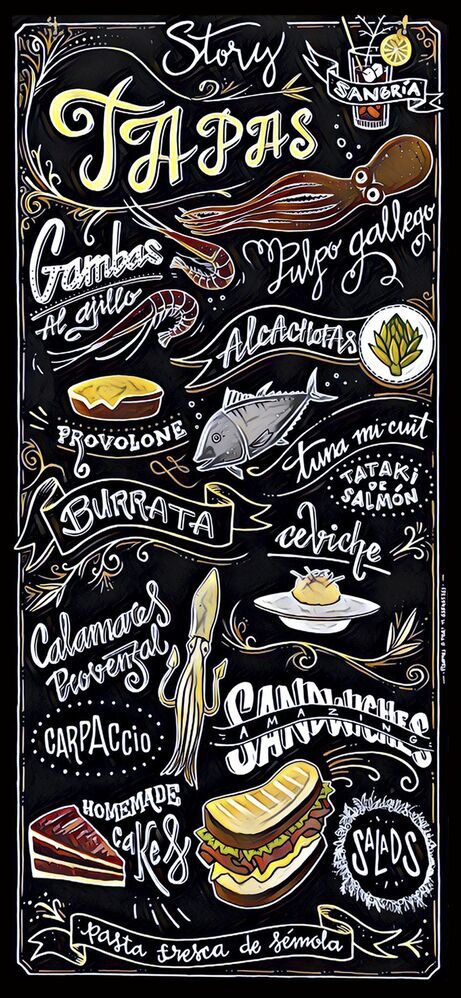 Story
SANGRÍA
TAPAS
Pulpo gallego
Gambas
Al ajillo
ALCACHOFAS
PROVOLONE
tuna mi-cuit
TATAKI
DE
SALMÓN
BURRATA
ceviche
Calamares
Provenzal
SANDWICHES
AMAZING
CARPACCIO
HOMEMADE
CAKES
SALADS
pasta fresca de sémola